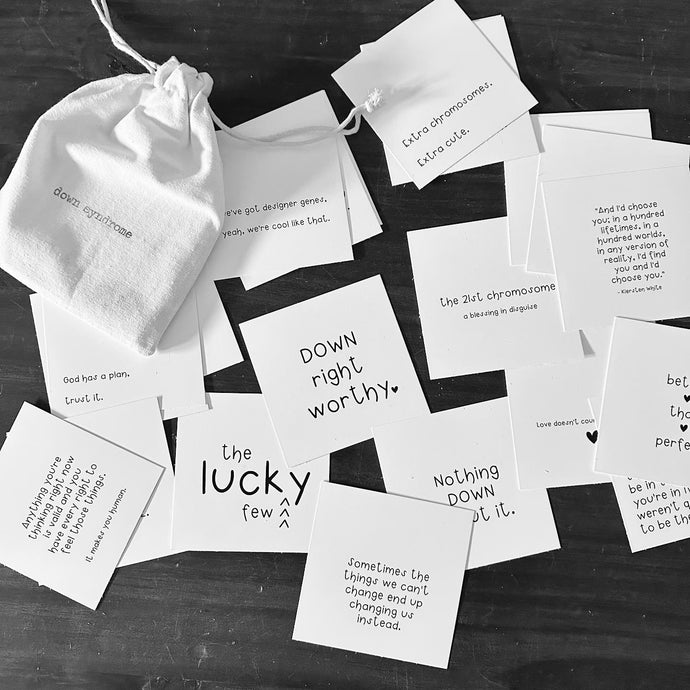 down syndrome
Extra chromosomes.
Extra cute.
we've got designer genes.
yeah, we're cool like that.
"And I'd choose
you; in a hundred
lifetimes, in a
hundred worlds,
in any version of
reality, I'd find
you and I'd
choose you."
- Kiersten White
the 21st chromosome
a blessing in disguise
DOWN
right
worthy.
God has a plan.
trust it.
Love doesn't
perfe
Anything you're
thinking right now
is valid and you
have every right to
feel those things.
It makes you human.
the
lucky
few
Nothing
DOWN
it.
be in
you're in
weren't
to be the
Sometimes the
things we can't
change end up
changing us
instead.